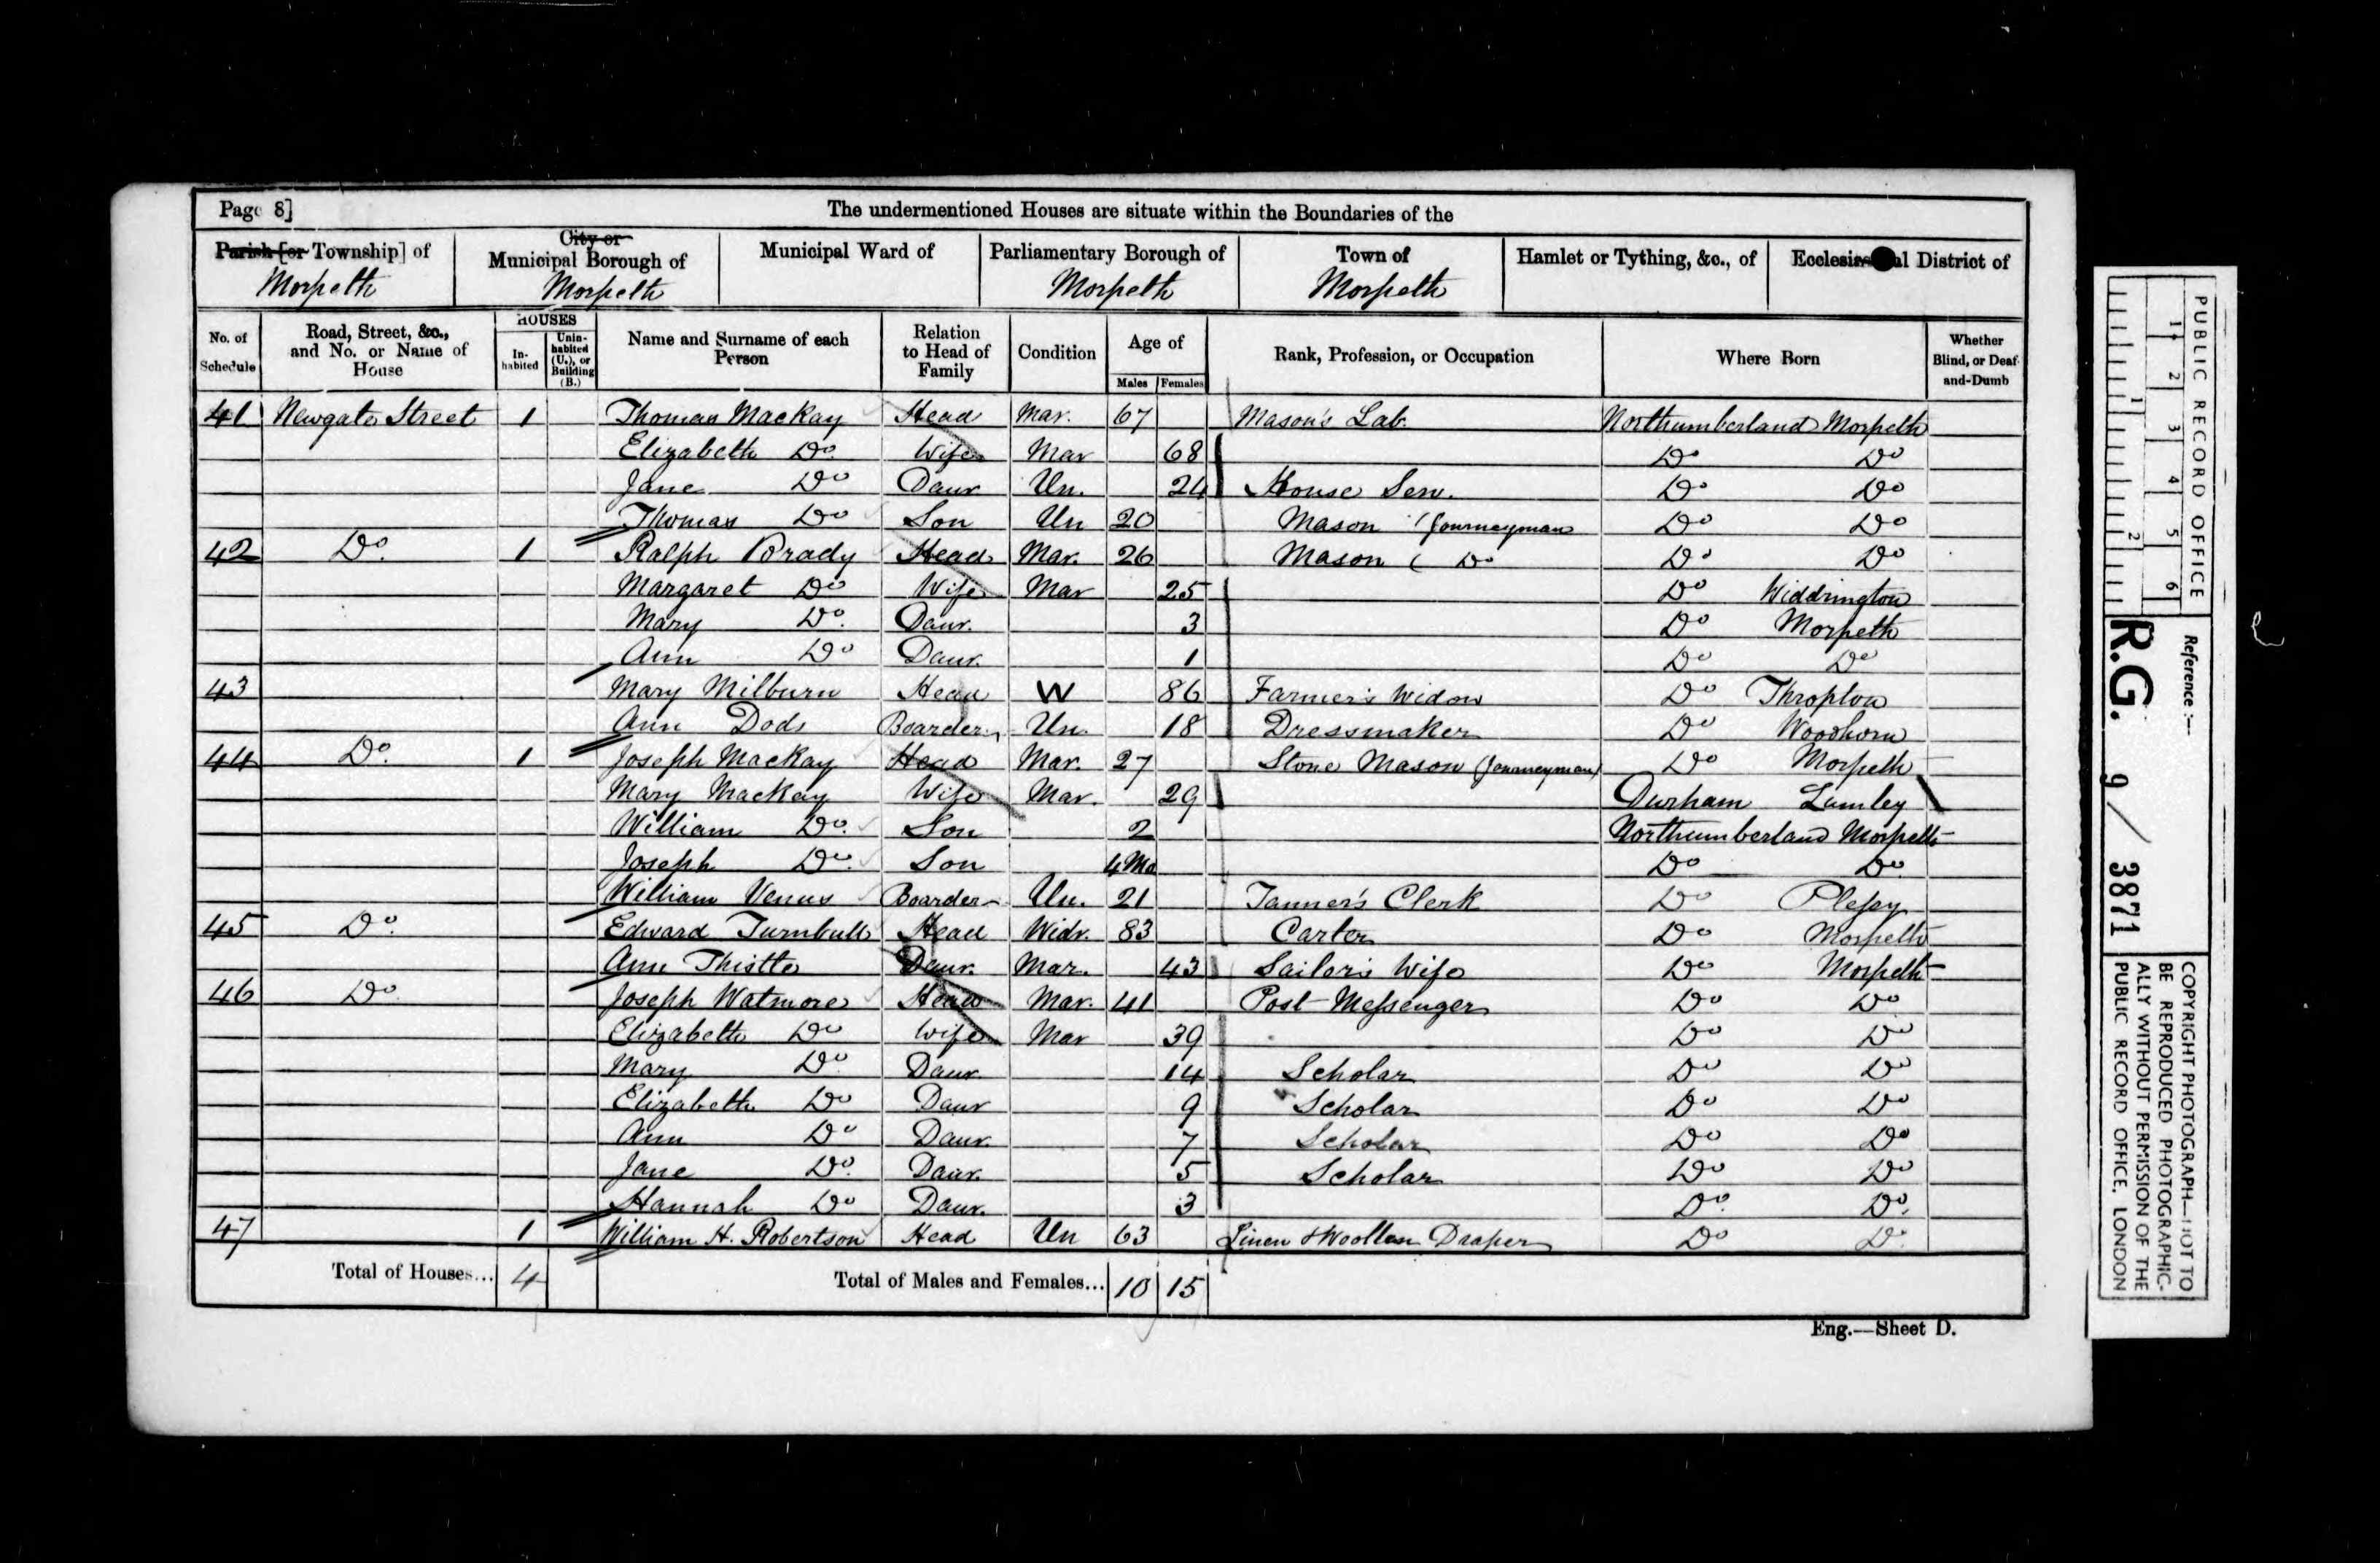 Page 8] The undermentioned Houses are situate within the Boundaries of the
Parish [or Township] of City or Municipal Borough of Municipal Ward of Parliamentary Borough of Town of Hamlet or Tything, &c., of Ecclesiastical District of
Morpeth Morpeth Morpeth Morpeth
No. of Schedule Road, Street, &c., and No. or Name of House HOUSES In-habited Unin-habited (U.), or Building (B.) Name and Surname of each Person Relation to Head of Family Condition Age of Males Females Rank, Profession, or Occupation Where Born Whether Blind, or Deaf-and-Dumb
41 Newgate Street 1 Thomas Mackay Head Mar. 67 Mason's Lab. Northumberland Morpeth
Elizabeth Do. Wife Mar 68 Do Do
Jane Do Daur Un. 24 House Serv. Do Do
Thomas Do Son Un 20 Mason (Journeyman Do Do
42 Do. 1 Ralph Brady Head Mar. 26 Mason ( Do Do Do
Margaret Do Wife Mar 25 Do Widdrington
Mary Do. Daur. 3 Do Morpeth
Ann Do Daur. 1 Do Do
43 Mary Milburn Head W 86 Farmer's Widow Do Thropton
Ann Dods Boarder Un. 18 Dressmaker Do Woodhorn
44 Do. 1 Joseph Mackay Head Mar. 27 Stone Mason (Journeyman) Do Morpeth
Mary Mackay Wife Mar. 29 Durham Lumley
William Do. Son 2 Northumberland Morpeth
Joseph Do. Son 4 Mo Do Do
William Venus Boarder Un. 21 Tanner's Clerk Do Plessy
45 Do. Edward Turnbull Head Widr. 83 Carter Do Morpeth
Ann Thistle Daur. Mar. 43 Sailor's Wife Do Morpeth
46 Do Joseph Watmore Head Mar. 41 Post Messenger Do Do
Elizabeth Do Wife Mar 39 Do Do
Mary Do Daur. 14 Scholar Do Do
Elizabeth Do Daur 9 Scholar Do Do
Ann Do Daur. 7 Scholar Do Do
Jane Do. Daur. 5 Scholar Do Do
Hannah Do Daur. 3 Do. Do.
47 1 William H. Robertson Head Un 63 Linen & Woollen Draper Do Do
Total of Houses... 4 Total of Males and Females... 10 15
Eng.—Sheet D.
PUBLIC RECORD OFFICE
1 2 3 4 5 6
1 2
Reference :—
R.G. 9/3871
COPYRIGHT PHOTOGRAPH—NOT TO
BE REPRODUCED PHOTOGRAPHIC-
ALLY WITHOUT PERMISSION OF THE
PUBLIC RECORD OFFICE, LONDON